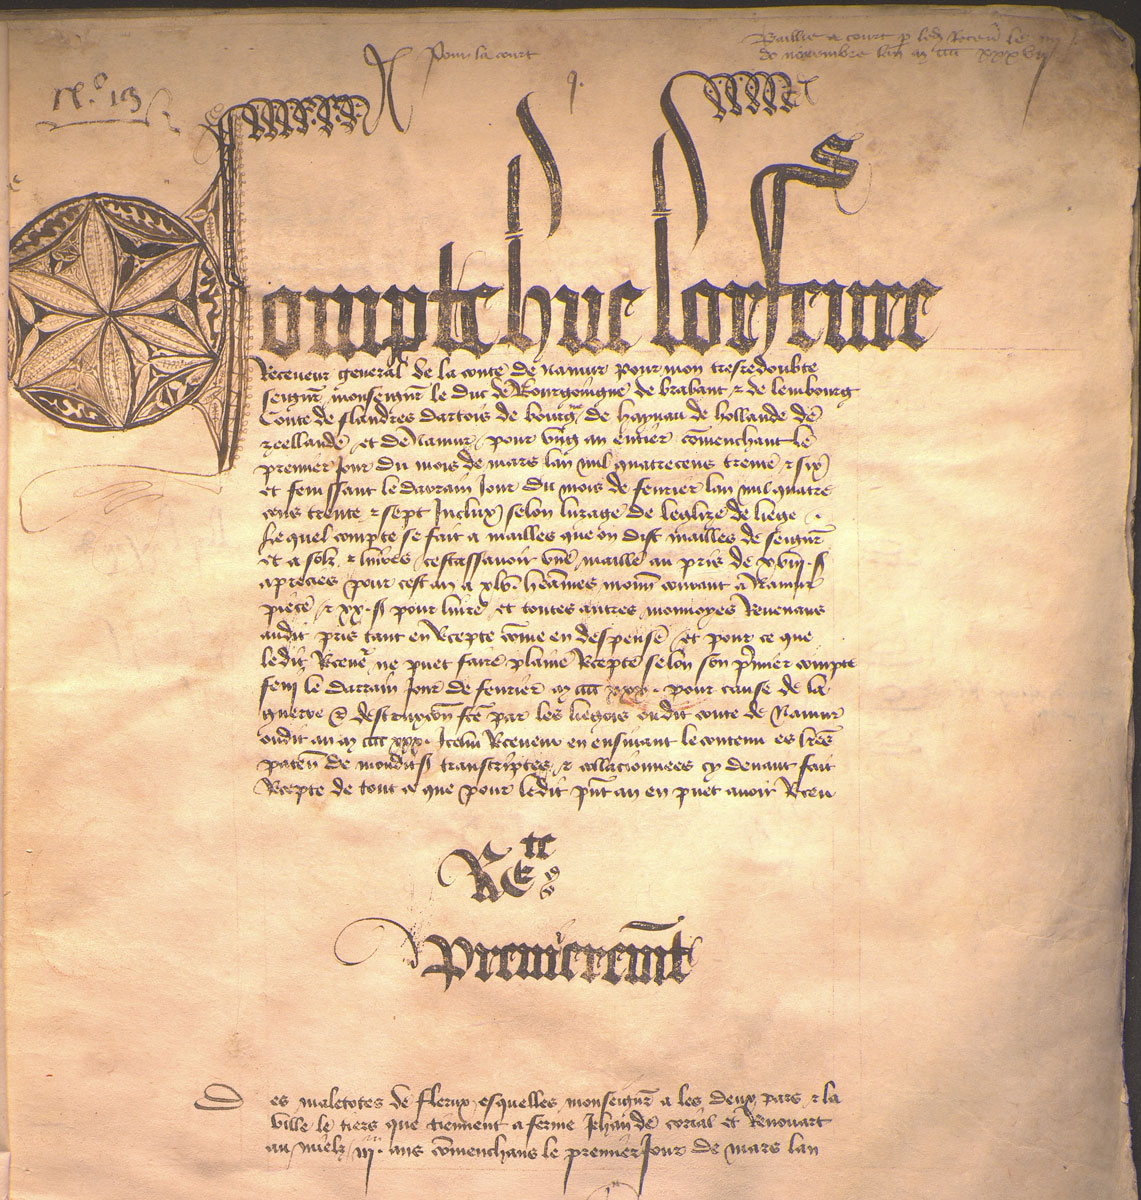 Pour la court
Baillie a court p led Receu le iiii
de novembre lan m iiiic xxxvii
No 19
Compte hue lorfeure
Receveur general de la conte de Namur pour mon tresredoubte
seignr monseignr le duc de Bourgoingne de brabant & de lembourg
Conte de flandres dartois de bourgne de haynau de hollande de
zeellande et de Namur pour ung an entier comenchant le
premier jour du mois de mars lan mil quatrecens trente & six
et fenissant le darrain jour du mois de fevrier lan mil quatre
cens trente & sept Inclux selon luzage de leglize de liege
Le quel compte se fait a mailles que on dist mailles de seignr
et a solz & livres cestassavoir une maille au pris de xviii s
apreciés pour cest an a xlv heaumes monn courant a Namur
piece & xx s pour livre et toutes autres monnoyes Revenans
audit pris tant en Recepte come en despense et pour ce que
ledit Recevr ne puet faire plaine Recepte selon son pmier compte
feni le darrain jour de fevrier m iiiic xxx pour cause de la
guerre & destruxcon fce par les liegois oudit conte de Namur
oudit an m iiiic xxx Icelui Receveur en ensivant le contenu es lres
paten de mondit s transcriptes & collacionnees cy devant fait
Recepte de tout ce que pour ledit pnt an en puet avoir Receu
REte
premieremt
Des maletotes de flerux esquelles monseignr a les deux pars & la
ville le tiers que tiennent a ferme Jehan de corial et Renouart
au mielz iij ans comenchans le premier jour de mars lan